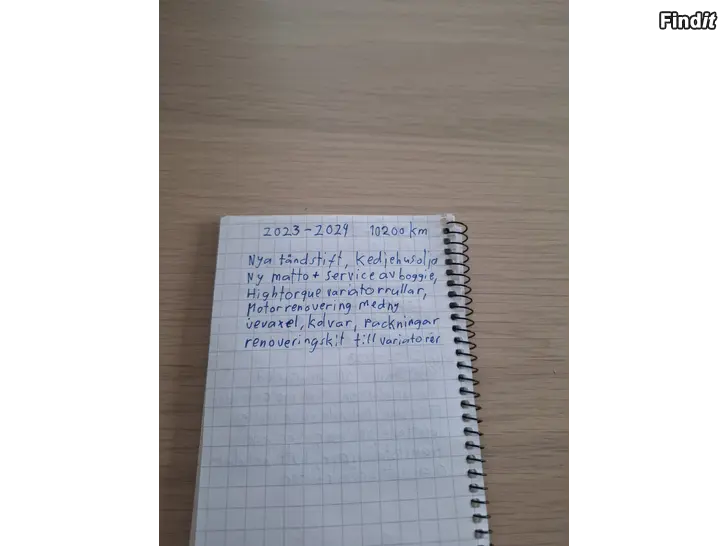 Findit
2023-2024 10200 km
Nya tåndstift, kedjehusolja
Ny matta + service av boggie,
Hightorque variatorrullar,
Motorrenovering med ny
vevaxel, kolvar, packningar
renoveringskit till variatorer